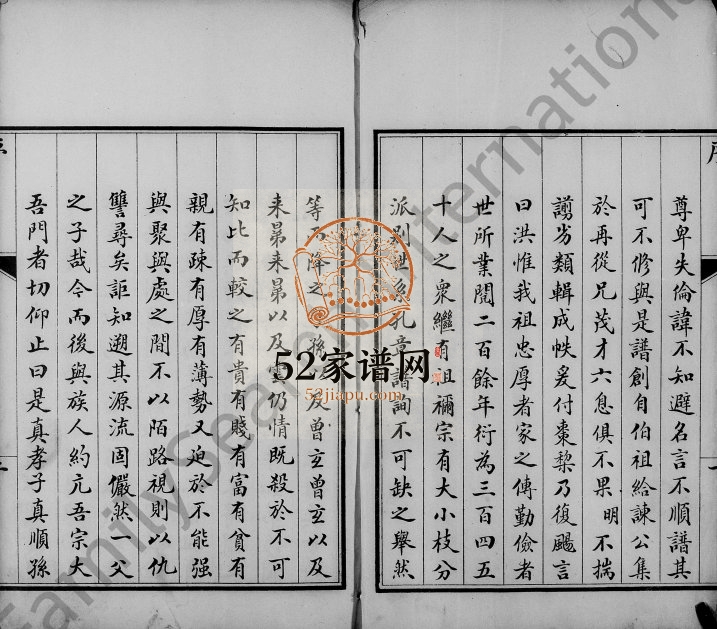 尊卑失倫諱不知避名言不順譜其
可不修與是譜創自伯祖給諫公集
於再從兄茂才六息俱不果明不揣
謭劣類輯成帙爰付棗棃乃復颺言
曰洪惟我祖忠厚者家之傳勤儉者
世所業閱二百餘年衍為三百四五
十人之衆繼有祖禰宗有大小枝分
派別世系孔章譜詢不可缺之舉然
等而降之孫以及曾玄曾玄以及
来晜来晜以及雲仍情既殺於不可
知比而較之有貴有賤有富有貧有
親有疎有厚有薄勢又迫於不能强
與聚與處之間不以陌路視則以仇
讐尋矣詎知遡其源流固儼然一父
之子哉今而後與族人約亢吾宗大
吾門者切仰止曰是真孝子真順孫
52家谱网
52jiapu.com
FamilySearch International